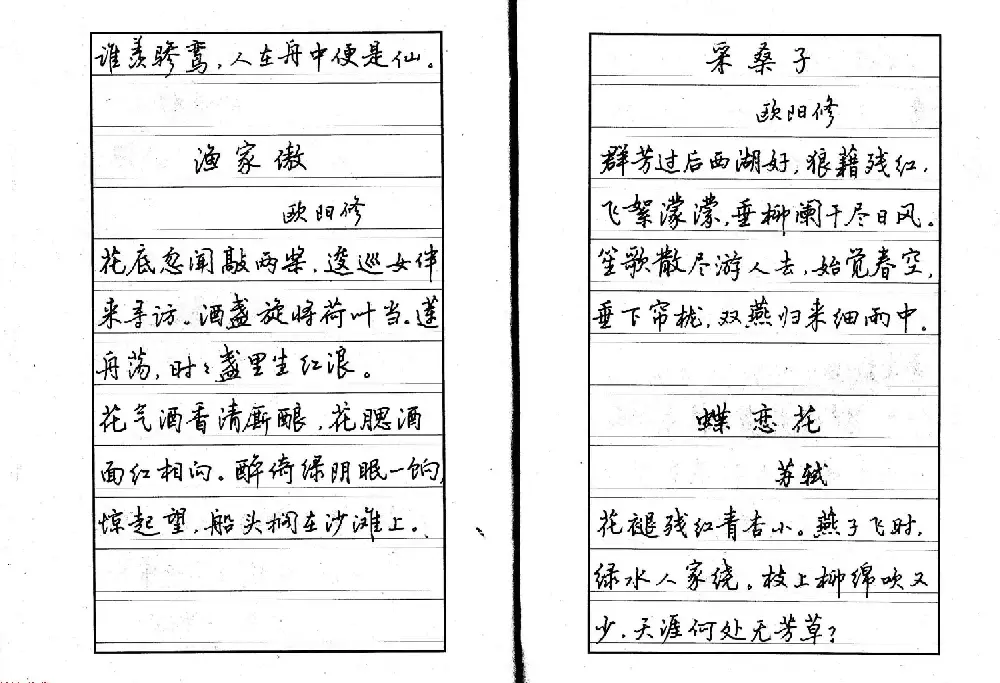 谁羡骖鸾，人在舟中便是仙。
渔家傲
欧阳修
花底忽闻敲两桨，逡巡女伴
来寻访。酒盏旋将荷叶当。莲
舟荡，时〻盏里生红浪。
花气酒香清厮酿，花腮酒
面红相向。醉倚绿阴眠一饷，
惊起望，船头搁在沙滩上。
采桑子
欧阳修
群芳过后西湖好，狼藉残红，
飞絮濛濛，垂柳阑干尽日风。
笙歌散尽游人去，始觉春空，
垂下帘栊，双燕归来细雨中。
蝶恋花
苏轼
花褪残红青杏小。燕子飞时，
绿水人家绕。枝上柳绵吹又
少，天涯何处无芳草？